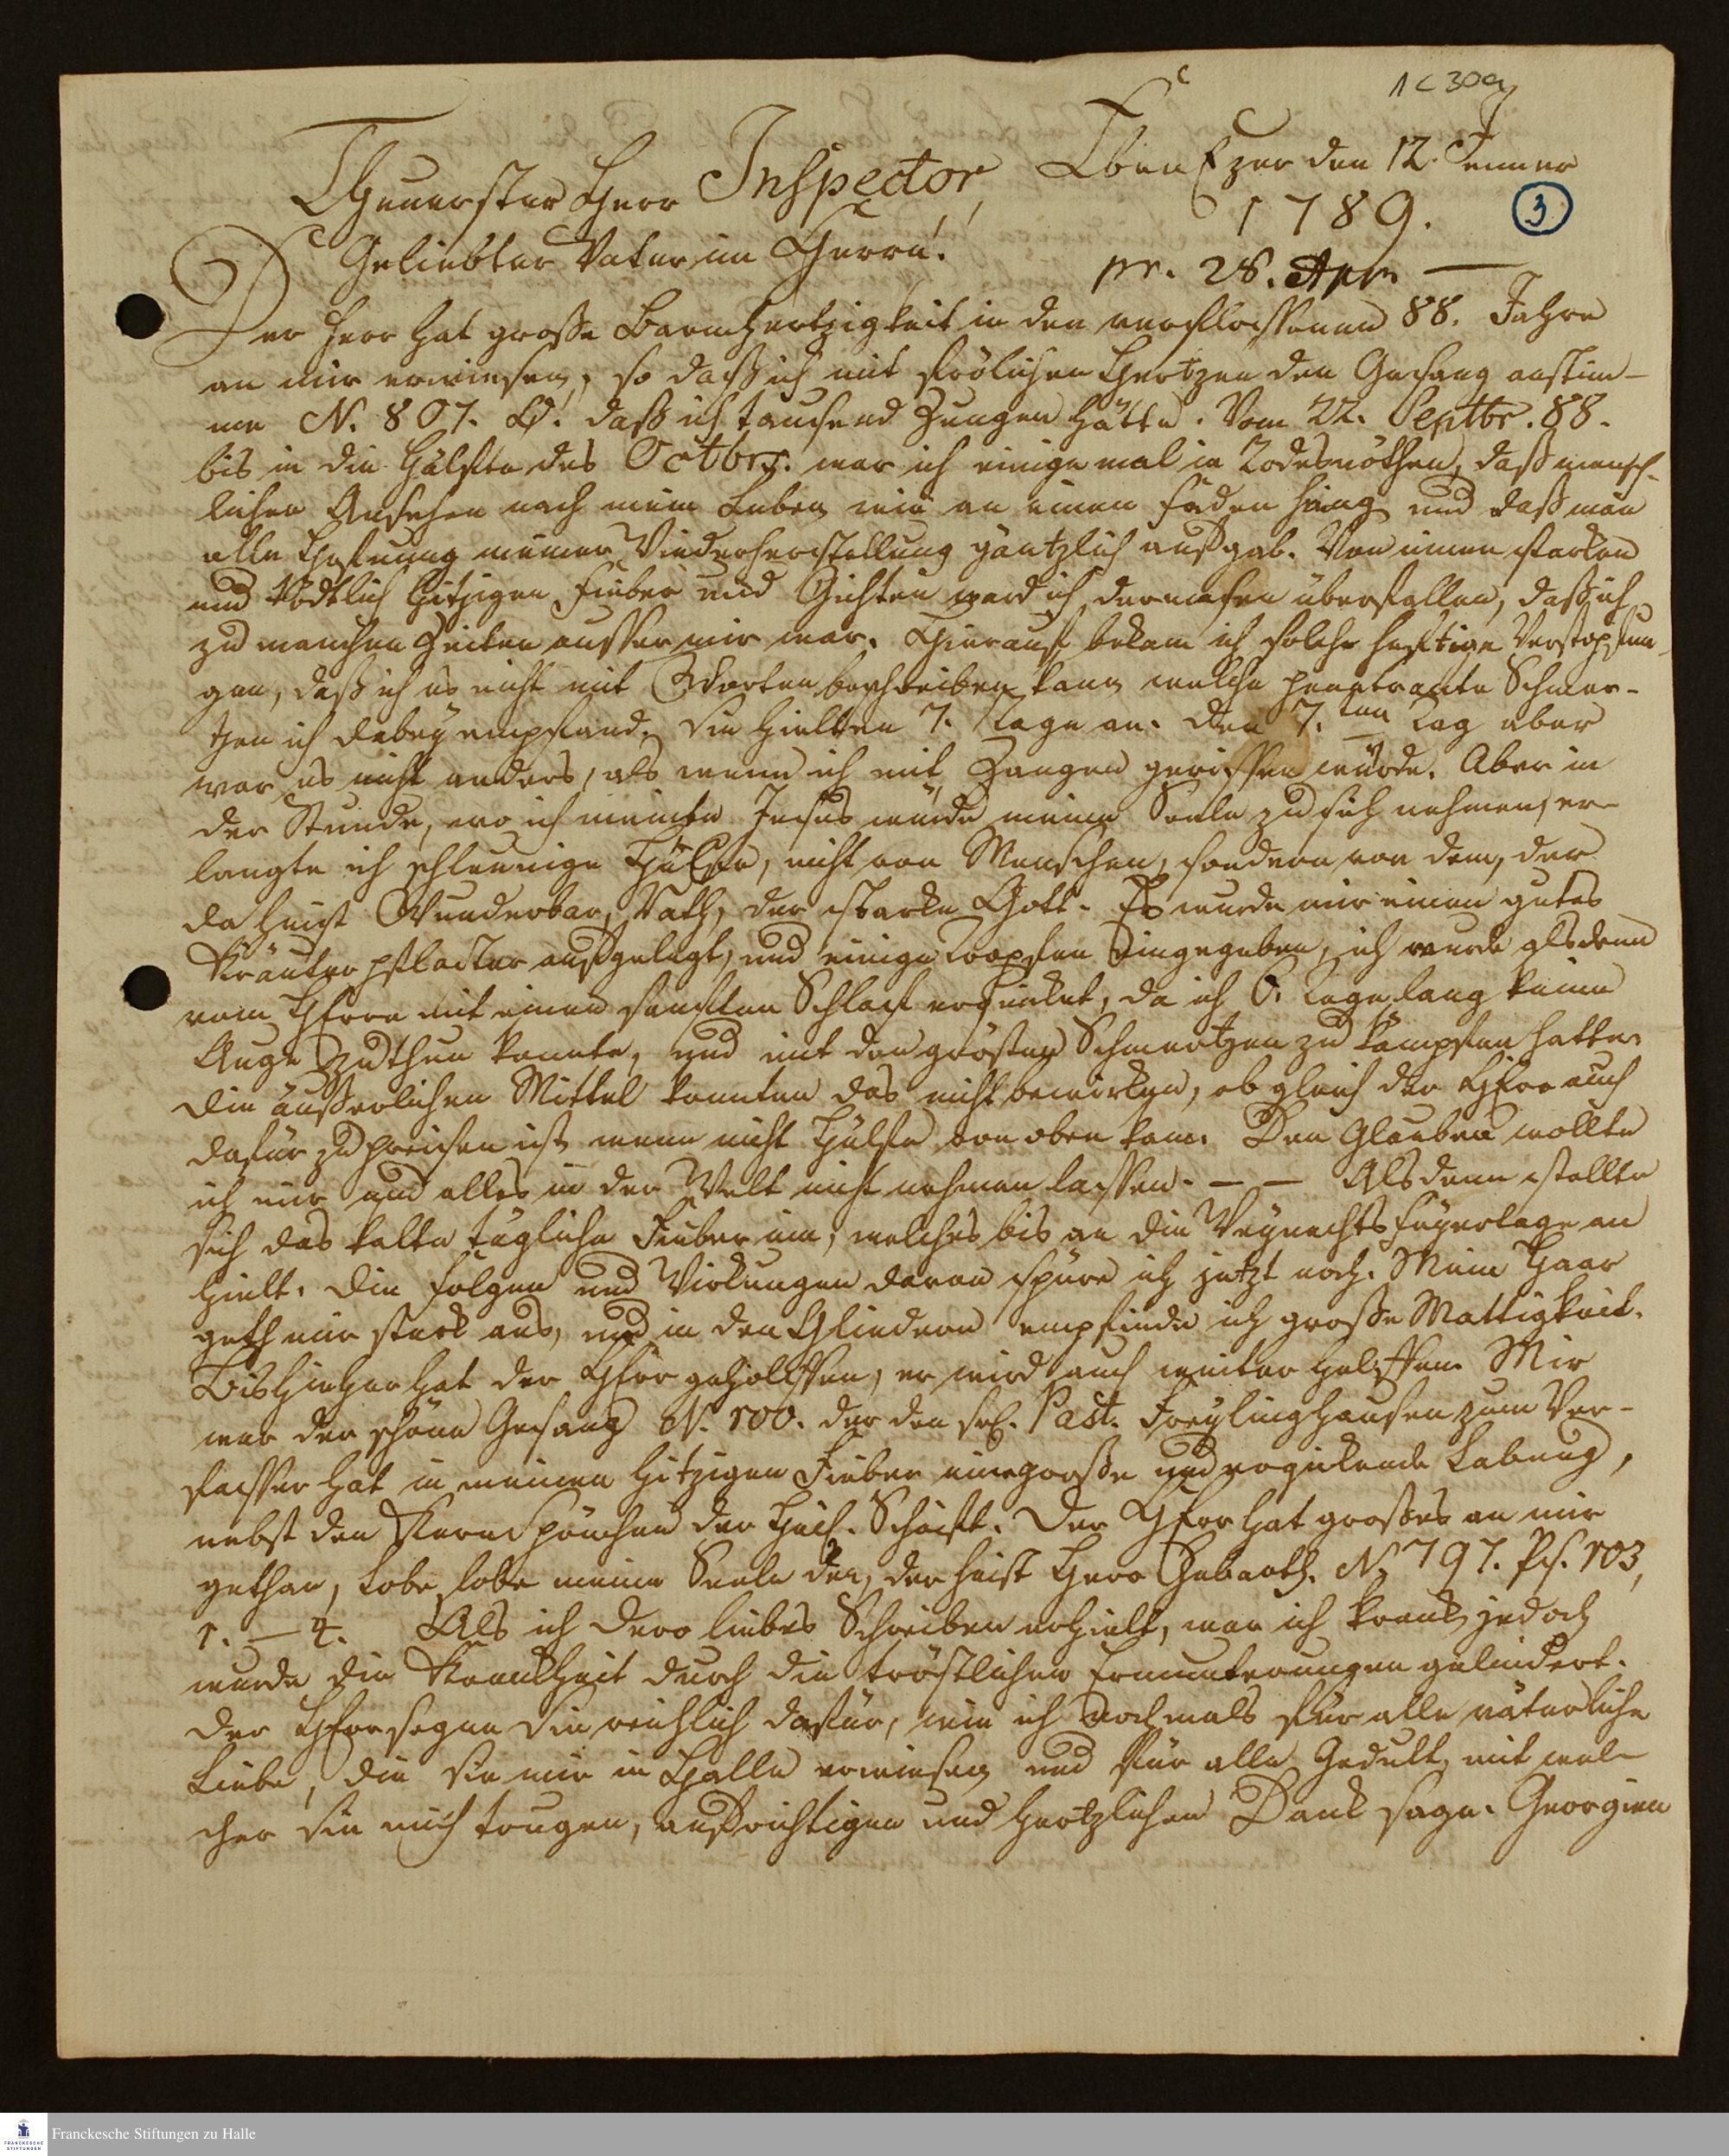 1 C 30a
EbenEzer den 12. Jenner
Theuerster Herr Inspector,
1789.
3
Geliebter Vater im Herrn!
pr. 28. Apr.
Der Herr hat große Barmhertzigkeit in den verfloßenen 88. Jahre
an mir erwiesen, so daß ich mit frölichen Hertzen den Gesang anstim-
me N. 807. O! daß ich tausend Zungen hätte. Vom 22. Septbr. 88.
bis in die Hälfte des Octbrs. war ich einige mal in Todesnöthen, daß mensch-
lichen Ansehen nach mein Leben wie an einen Faden hieng und daß man
alle Hofnung meiner Wiederherstellung gäntzlich aufgab. Von einen starken
und tödtlich hitzigen Fieber und Gichten ward ich dermasen überfallen, daß ich
zu manchen Zeiten ausser mir war. Hierauf bekam ich solche heftige Verstopfun-
gen, daß ich es nicht mit Worten beschreiben kann welche penetrante Schmer-
tzen ich dabey empfand. Sie hielten 7. Tage an. Den 7.ten Tag aber
war es nicht anders, als wenn ich mit Zangen gerissen würde. Aber in
der Stunde, wo ich meinte Jesus würde meine Seele zu sich nehmen, er-
langte ich schleunige Hülfe, nicht von Menschen, sondern von dem, der
da heist Wunderbar, Rath, der starke Gott. Es wurde mir einen gutes
Kräuter pflaster aufgelegt, und einige Tropfen eingegeben, ich wurde alsdenn
vom HErrn mit einen sanften Schlaf erquicket, da ich 6. Tage lang keine
Auge zuthun konnte, und mit den grösten Schmertzen zu kämpfen hatte.
Die äußerlichen Mittel konnten das nicht bewirken, ob gleich der HErr auch
dafür zu preisen ist, wenn nicht Hülfe von oben kam. Den Glauben wollte
ich mir um alles in der Welt nicht nehmen lassen. — — Alsdenn stellte
sich das kalte tägliche Fieber ein, welches bis an die Weynachts Feyertage an
hielt. Die Folgen und Wirkungen davon spüre ich jetzt noch. Mein Haar
geth mir stark aus, und in den Gliedern empfinde ich große Mattigkeit.
Bis hieher hat der HErr geholffen, er wird auch weiter helffen. Mir
war der schöne Gesang N. 100. der den sel. Past. Freylinghausen zum Ver-
fasser hat in meinen hitzigen Fieber eine große und erquickende Labung,
nebst den Kern Sprüchen der Heil. Schrift. Der HErr hat großes an mir
gethan, Lobe, lobe meine Seele den, der heist Herr Zebaoth. N. 797. Ps. 103,
1. — 4. Als ich Dero liebes Schreiben erhielt, war ich krank, jedoch
wurde die Krankheit durch die tröstlichen Ermunterungen gelindert.
Der HErr segne Sie reichlich dafür, wie ich nochmals für alle väterliche
Liebe, die Sie mir in Halle erwiesen und für alle Gedult, mit wel-
cher Sie mich trugen, aufrichtigen und hertzlichen Dank sage. Georgien
FRANCKESCHE STIFTUNGEN
Franckesche Stiftungen zu Halle